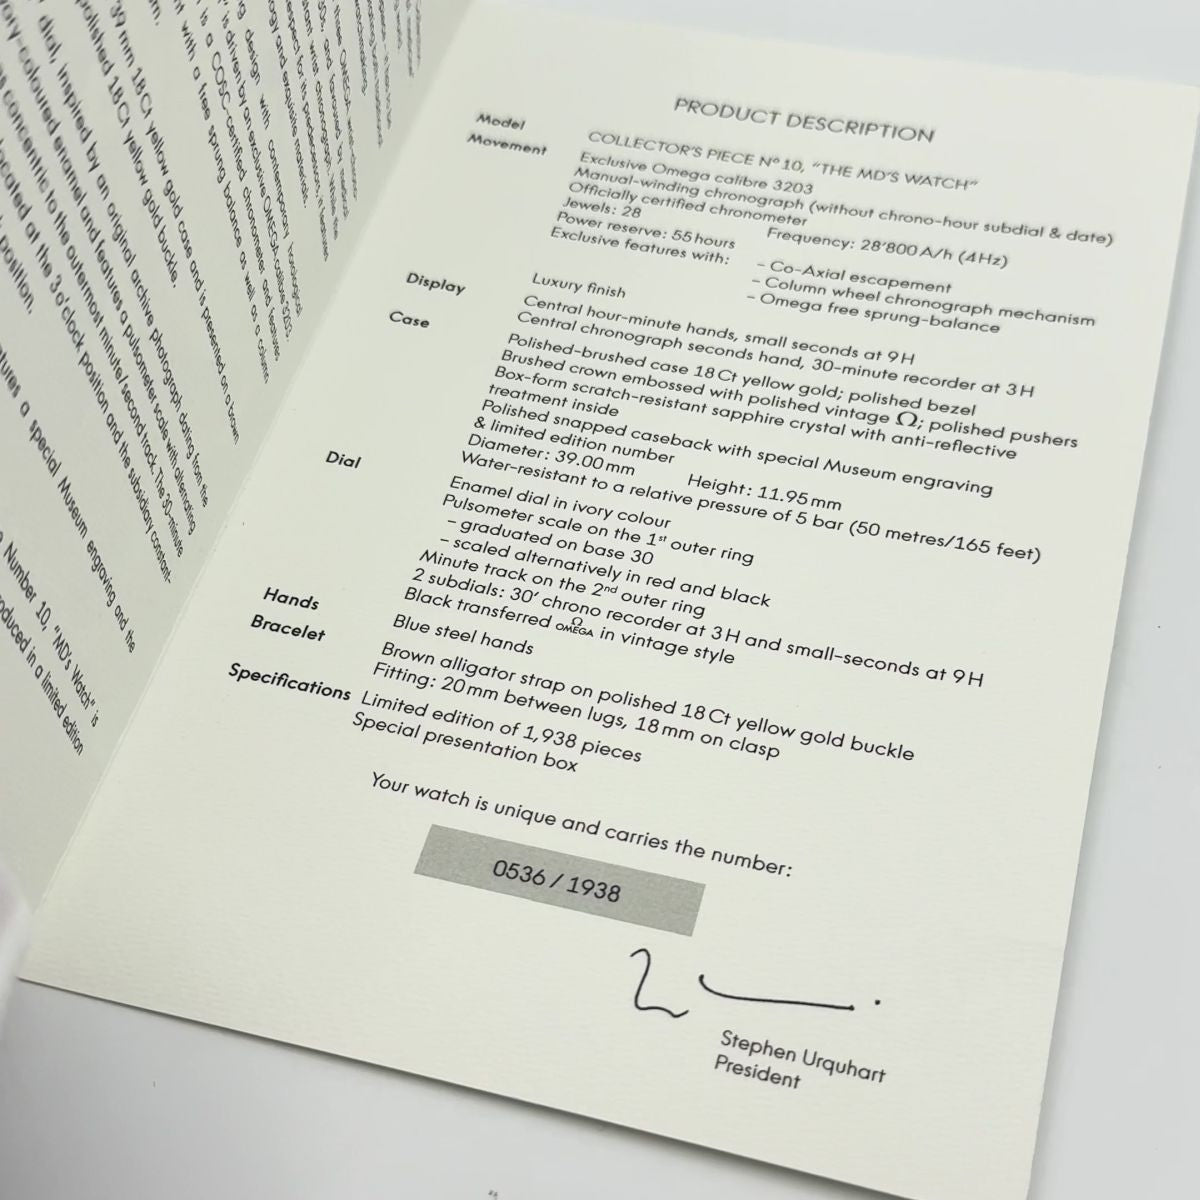 39 mm 18 Ct yellow gold case and is presented on a brown
polished 18 Ct yellow gold buckle.
dial, inspired by an original archive photograph dating from the
ivory-coloured enamel and features a pulsometer scale with alternating
concentric to the outermost minute/second track. The 30-minute
located at the 3 o'clock position and the subsidiary constant-
position.
features a special Museum engraving and the
Number 10, "MD's Watch" is
produced in a limited edition
PRODUCT DESCRIPTION
Model COLLECTOR'S PIECE Nº 10, "THE MD'S WATCH"
Movement Exclusive Omega calibre 3203
Manual-winding chronograph (without chrono-hour subdial & date)
Officially certified chronometer
Jewels: 28 Frequency: 28'800 A/h (4Hz)
Power reserve: 55 hours
Exclusive features with: - Co-Axial escapement
- Column wheel chronograph mechanism
- Omega free sprung-balance
Luxury finish
Display Central hour-minute hands, small seconds at 9 H
Central chronograph seconds hand, 30-minute recorder at 3 H
Case Polished-brushed case 18 Ct yellow gold; polished bezel
Brushed crown embossed with polished vintage Ω; polished pushers
Box-form scratch-resistant sapphire crystal with anti-reflective
treatment inside
Polished snapped caseback with special Museum engraving
& limited edition number
Diameter: 39.00 mm Height: 11.95 mm
Water-resistant to a relative pressure of 5 bar (50 metres/165 feet)
Dial Enamel dial in ivory colour
Pulsometer scale on the 1st outer ring
- graduated on base 30
- scaled alternatively in red and black
Minute track on the 2nd outer ring
2 subdials: 30' chrono recorder at 3 H and small-seconds at 9 H
Black transferred Ω OMEGA in vintage style
Hands Blue steel hands
Bracelet Brown alligator strap on polished 18 Ct yellow gold buckle
Fitting: 20 mm between lugs, 18 mm on clasp
Specifications Limited edition of 1,938 pieces
Special presentation box
Your watch is unique and carries the number:
0536 / 1938
Stephen Urquhart
President